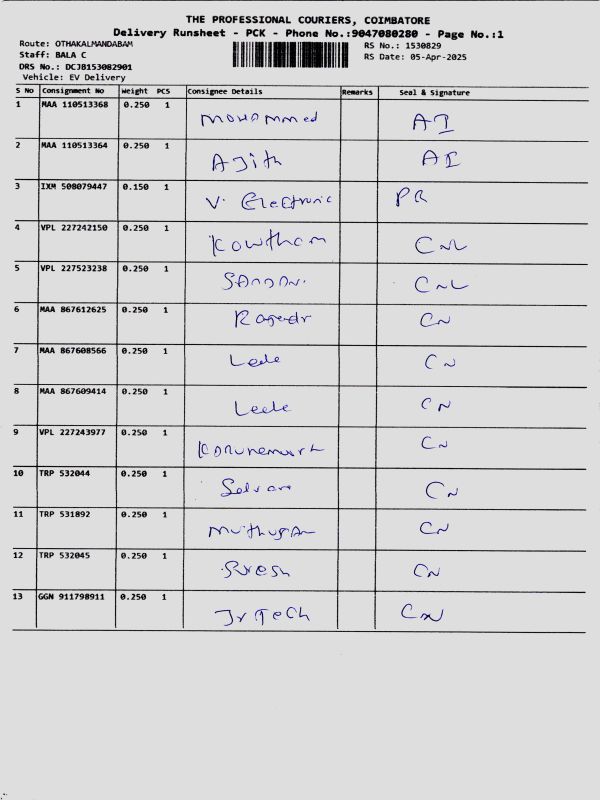 THE PROFESSIONAL COURIERS, COIMBATORE
Delivery Runsheet - PCK - Phone No.:9047080280 - Page No.:1
Route: OTHAKALMANDABAM
RS No.: 1530829
Staff: BALA C
RS Date: 05-Apr-2025
DRS No.: DCJB153082901
Vehicle: EV Delivery
S No Consignment No Weight PCS Consignee Details Remarks Seal & Signature
1 MAA 110513368 0.250 1 Mohammed AI
2 MAA 110513364 0.250 1 AJith AI
3 IXM 508079447 0.150 1 V. Electronic PR
4 VPL 227242150 0.250 1 Kowtham CNL
5 VPL 227523238 0.250 1 CNL
6 MAA 867612625 0.250 1 CN
7 MAA 867608566 0.250 1 CN
8 MAA 867609414 0.250 1 CN
9 VPL 227243977 0.250 1 CN
10 TRP 532044 0.250 1 CN
11 TRP 531892 0.250 1 CN
12 TRP 532045 0.250 1 Suresh CN
13 GGN 911798911 0.250 1 JrTech CN